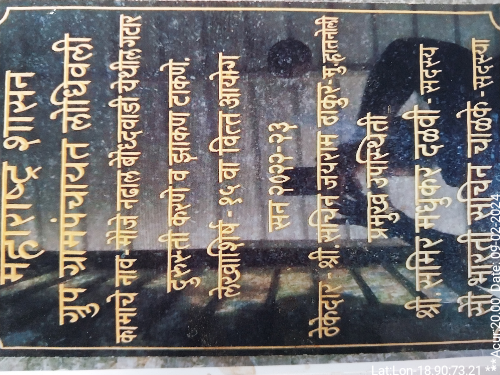 महाराष्ट्र शासन
ग्रुप ग्रामपंचायत लोधिवली
कामाचे नाव-मौजे नढाल बौध्दवाडी येथील गटार
दुरुस्ती करणे व झाकण टाकणे.
लेखाशिर्ष - १५ वा वित्त आयोग
सन २०२२-२३
ठेकेदार - श्री. सचिन जयराम ठाकुर-मु.
प्रमुख उपस्थिती
श्री. समिर मधुकर दळवी - सदस्य
सौ. भारती सचिन चाळके- सदस्या
Lat:Lon-18.90:73.21
**Acc:20.00 Date: 09-02-2024